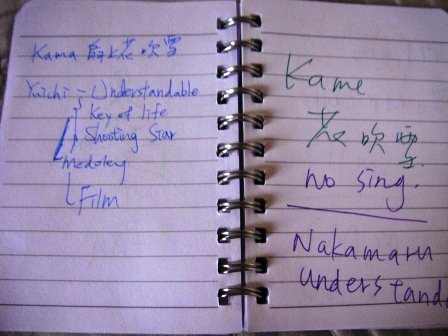 Kama 最後花吹雪
Yuichi - Understandable
Key of life
Shooting Star
Medoley
Film
Kame
花吹雪
no sing.
Nakamaru
understanda